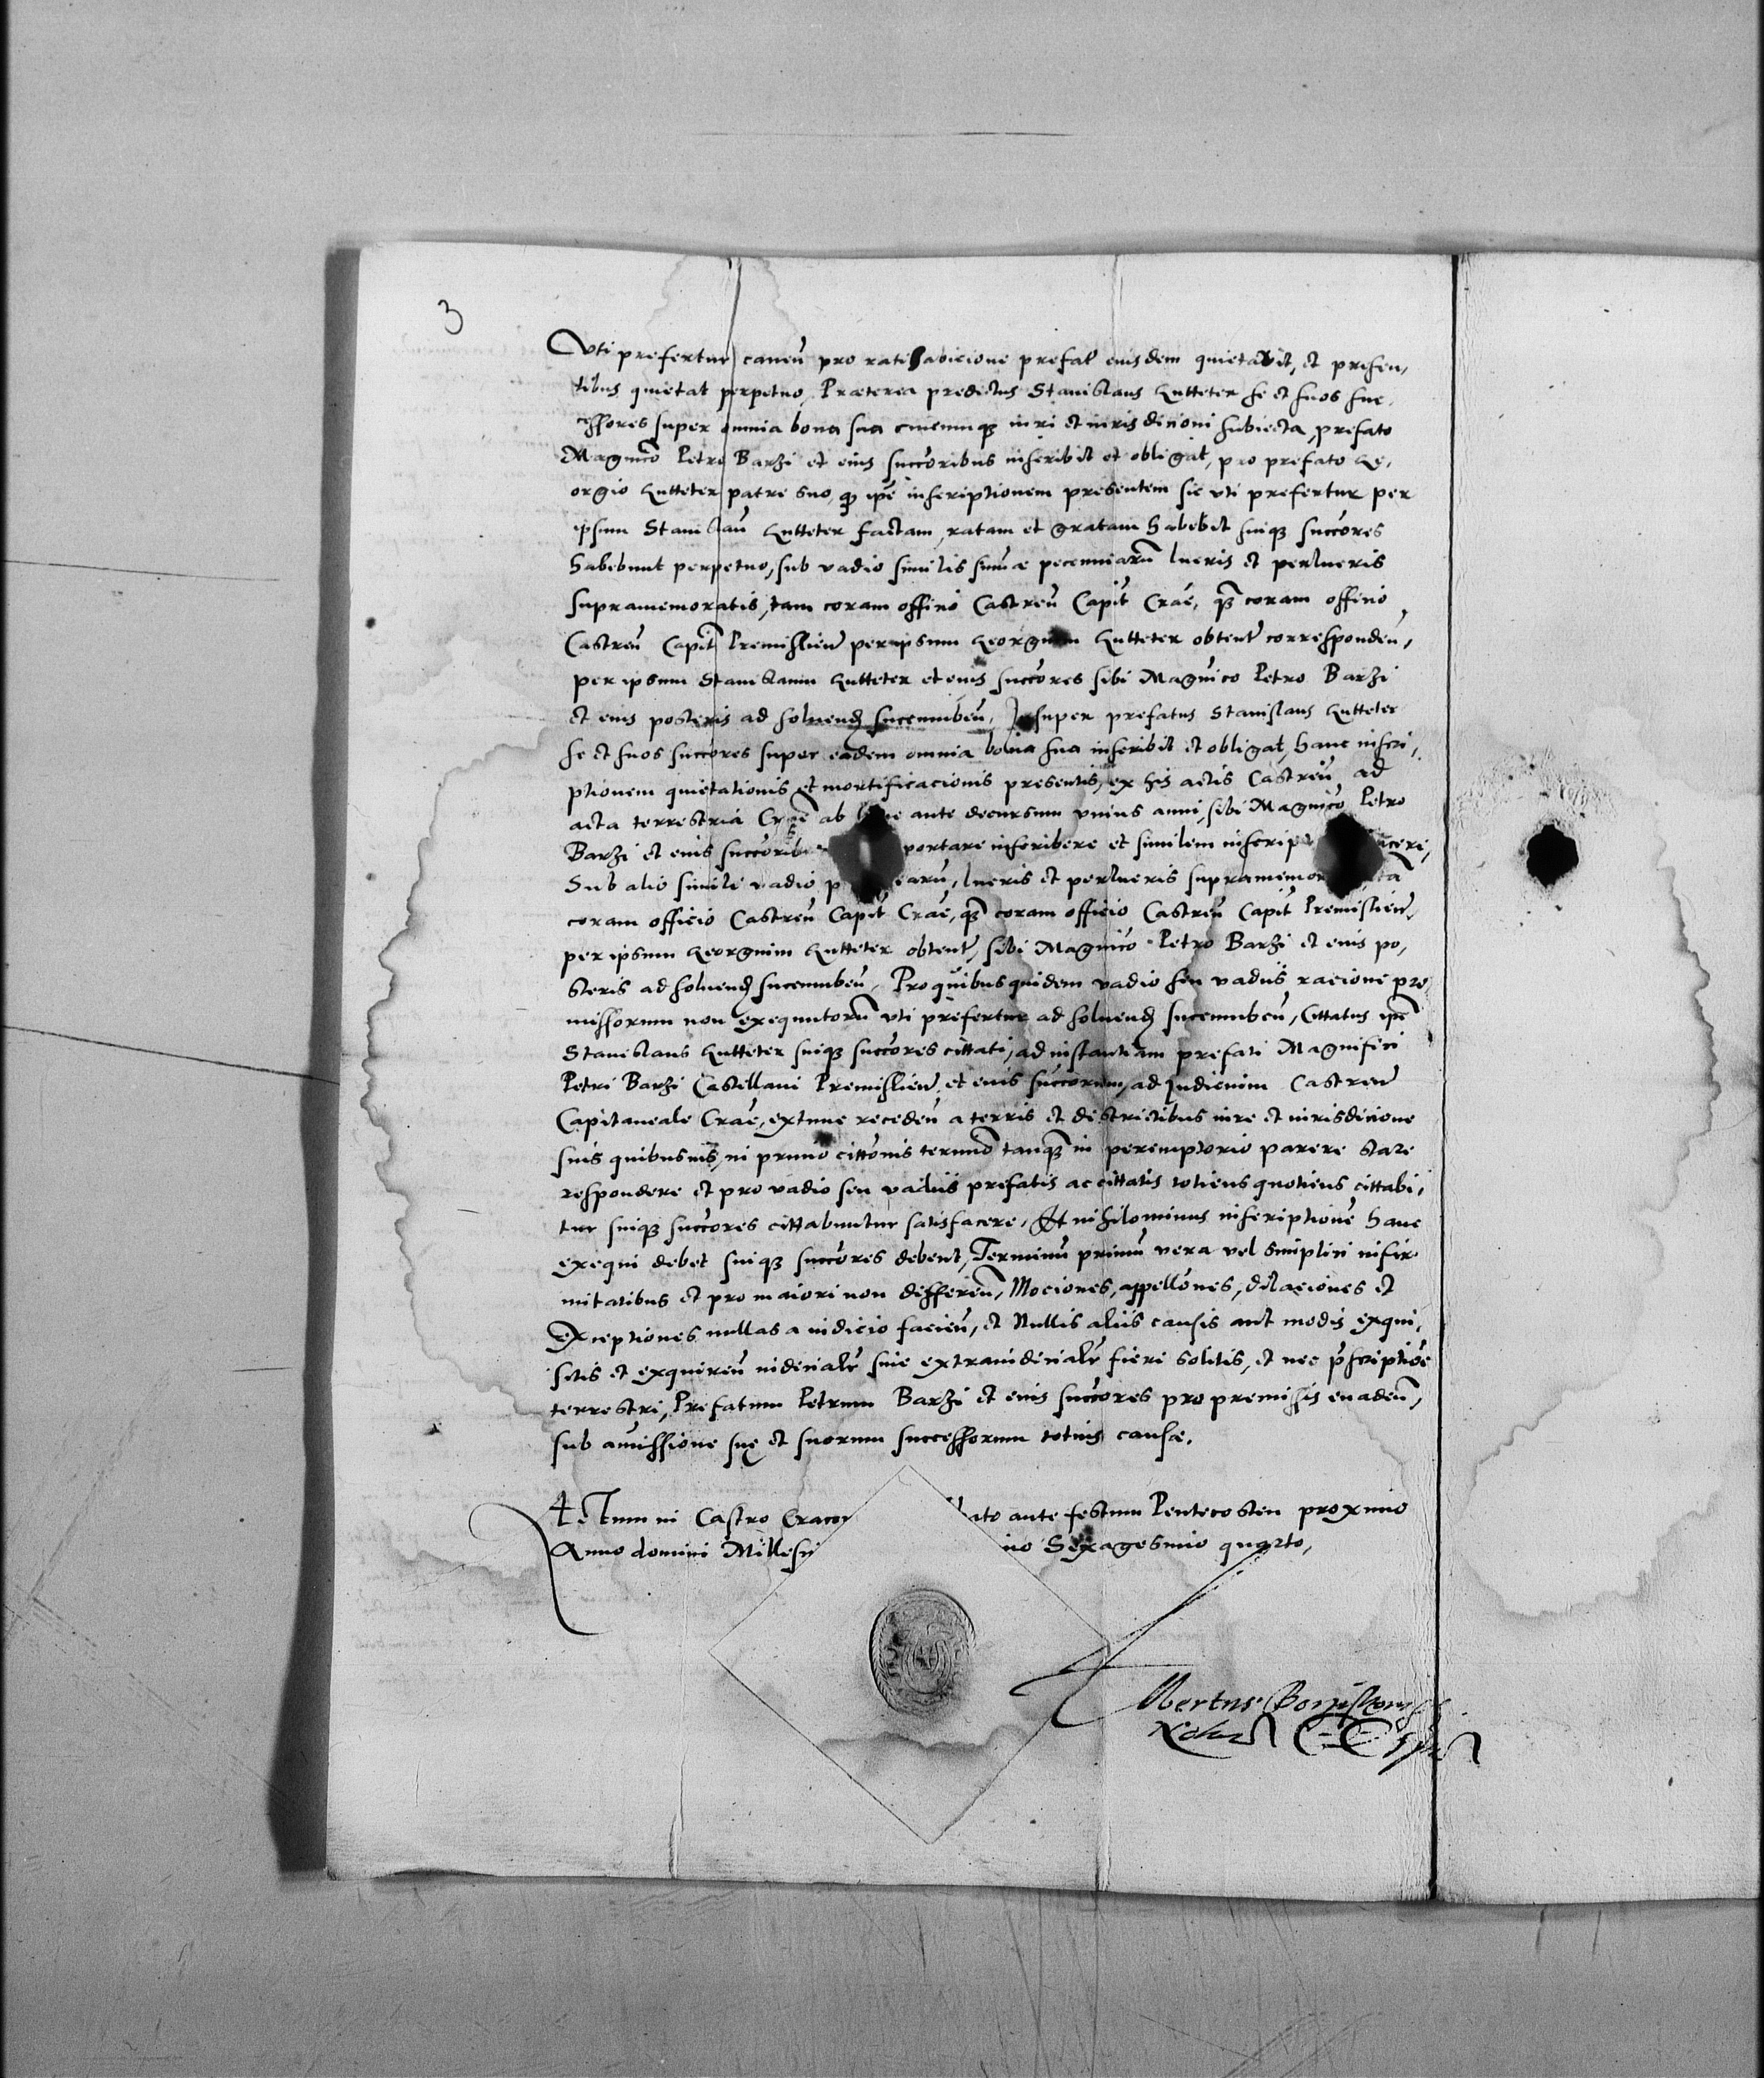 3
Vti prefertur caueñ pro ratihabicione prefat eiusdem quietavit, et presen,
tibus quietat perpetuo, Præterea predictus Stanislaus Hutteter se et suos suc,
cessores super omnia bona sua cuicumq; iuri et iurisdicioni subiecta, prefato
Magnico Petro Barzi et eius succoribus inscribit et obligat, pro prefato Ge,
orgio Hutteter patre suo, q ipe inscriptionem presentem sic vti prefertur per
ipsum Stanislau Hutteter factam, ratam et gratam habebit suiq; succores
habebunt perpetuo, sub vadio similis sumæ pecuniaru lucris et perlucris
supramemoratis, tam coram officio Castreñ Capit Craē, q coram officio
Castreñ Capit Premislieñ per ipsum Georgium Hutteter obtent correspondeñ,
per ipsum Stanislaum Hutteter et eius succores sibi Magnico Petro Barzi
et eius posteris ad soluend succumbeñ, Insuper prefatus Stanislaus Hutteter
se et suos succores super eadem omnia bona sua inscribit et obligat, hanc inscri,
ptionem quietationis et mortificacionis presentis, ex his actis Castreñ ad
acta terrestria Craē ab ante decursum vnius anni, sibi Magnico Petro
Barzi et eius succorib portare inscribere et similem inscrip acere,
Sub alio simili vadio p earu, lucris et perlucris supramemor
coram officio Castreñ Capit Craē, q coram officio Castreñ Capit Premislieñ
per ipsum Georgium Hutteter obtent, sibi Magnico Petro Barzi et eius po,
steris ad soluend succumbeñ, Pro quibus quidem vadio seu vadiis racione pre
missorum non exequutoru vti prefertur ad soluend succumbeñ, Cittatus ipe
Stanislaus Hutteter suiq; succores cittati, ad instantiam prefati Magnifici
Petri Barzi Castellani Premislieñ et eius succorum, ad Iudicium Castreñ
Capitaneale Craē, extunc recedeñ a terris et districtibus iure et iurisdicione
suis quibusuis, in primo cittonis termino tanq in peremptorio parere stare
respondere et pro vadio seu vadiis prefatis ac cittatis totiens quotiens cittabi,
tur suiq; succores cittabuntur satisfacere, Et nihilominus inscriptione hanc
exequi debet suiq; succores debent, Terminu primu vera vel simplici infir
mitatibus et pro maiori non differeñ, Mociones, appellones, dilaciones et
Exceptiones nullas a iudicio facieñ, et Nullis aliis causis aut modis exqui,
sitis et exquireñ iudicialr siue extraiudicialr fieri solitis, et nec pscriptioe
terrestri, Prefatum Petrum Barzi et eius succores pro premissis euadeñ,
sub amissione suę et suorum successorum totius causæ.
Actum in Castro Cracov ato ante festum Pentecosten proximo
Anno domini Millesi no Sexagesimo quarto,
Albertus